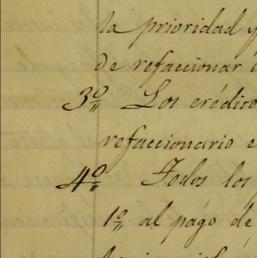 la prioridad y
de refaccionar
3º Los crédito
refaccionario e
4º Todos los
1º al pago de